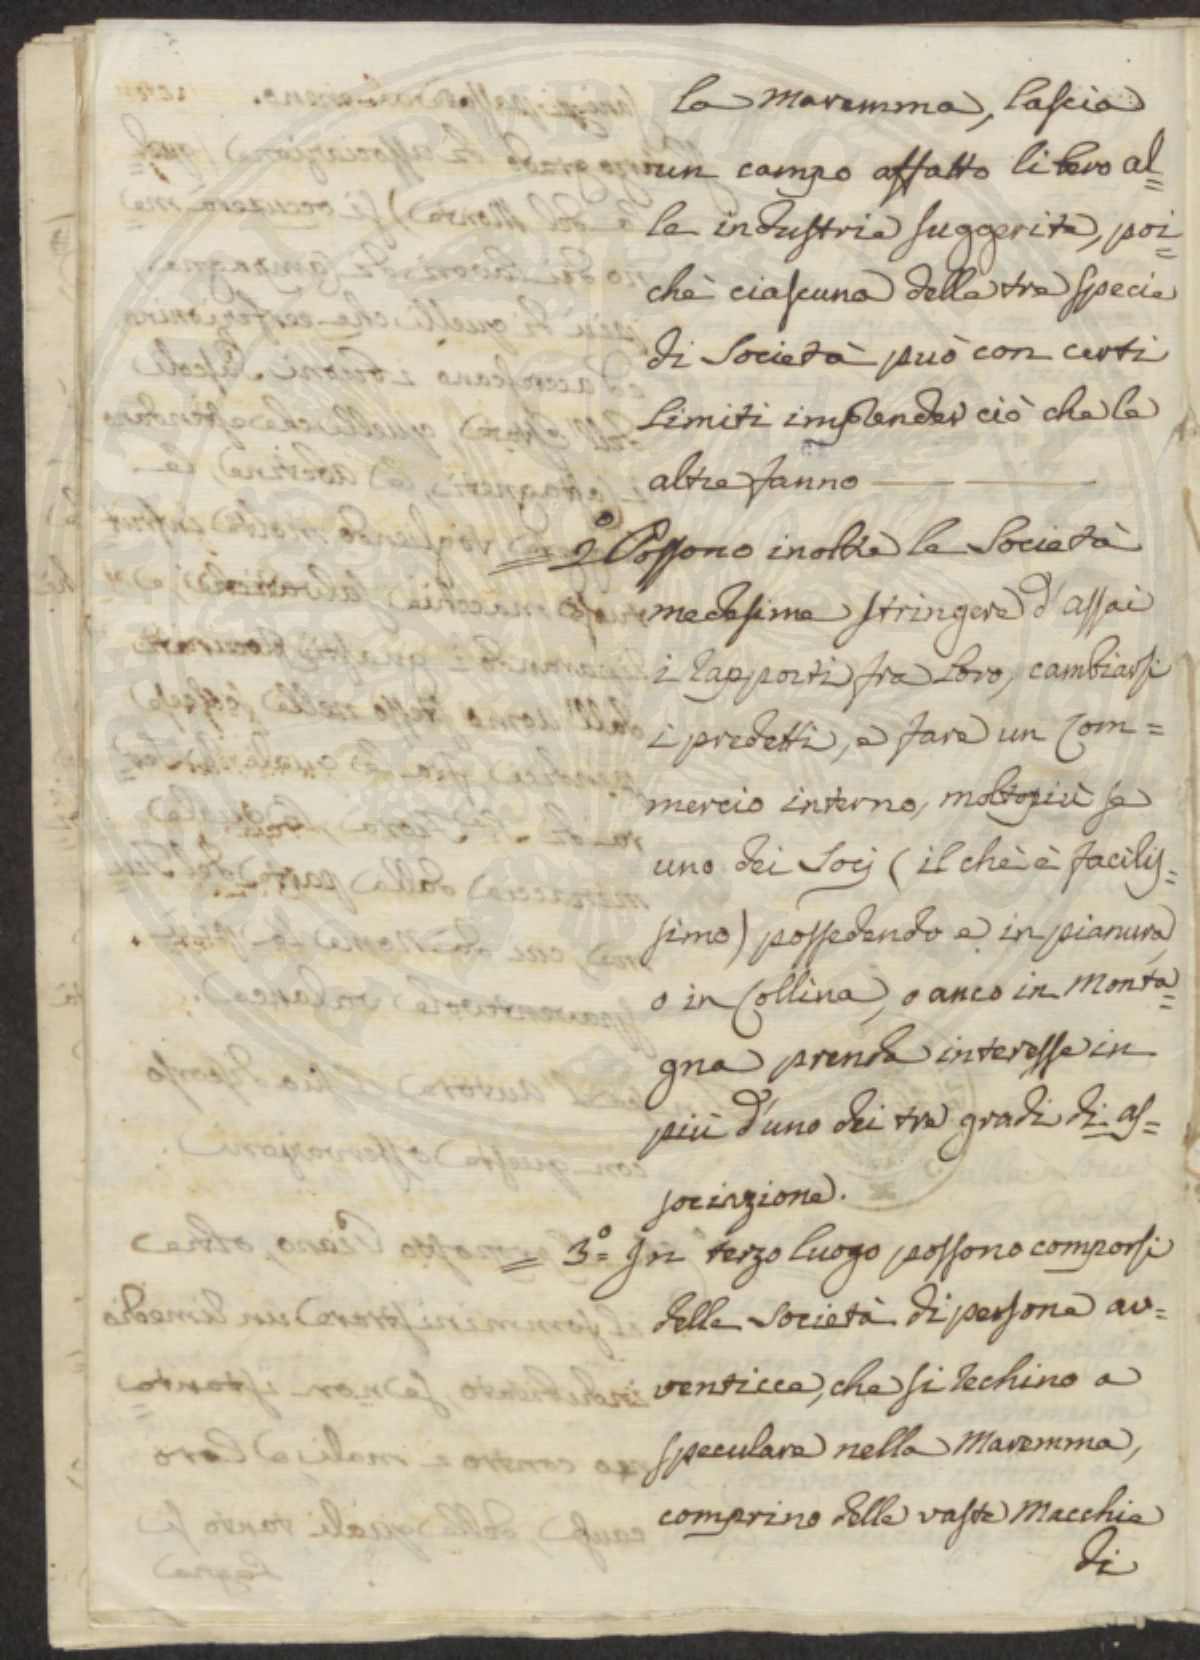 la Maremma, lascia
un campo affatto libero al=
le industrie suggerite, poi=
chè ciascuna delle tre specie
di Società può con certi
limiti imprender ciò che le
altre fanno — —
= 2.° Possono inoltre le Società
medesime stringere d'assai
i rapporti fra loro, cambiarsi
i predetti, e fare un Com=
mercio interno, moltopiù se
uno dei Socj (il chè è facilis=
simo) possedendo e in pianura,
o in Collina, o anco in Monta=
gna prenda interesse in
più d'uno dei tre gradi di as=
sociazione.
= 3.° In terzo luogo possono comporsi
delle Società di persone av=
venticce, che si rechino a
speculare nella Maremma,
comprino delle vaste Macchie
di